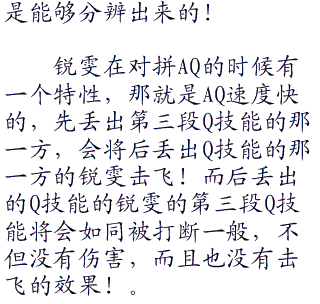 是能够分辨出来的！
锐雯在对拼AQ的时候有
一个特性，那就是AQ速度快
的，先丢出第三段Q技能的那
一方，会将后丢出Q技能的那
一方的锐雯击飞！而后丢出
的Q技能的锐雯的第三段Q技
能将会如同被打断一般，不
但没有伤害，而且也没有击
飞的效果！。